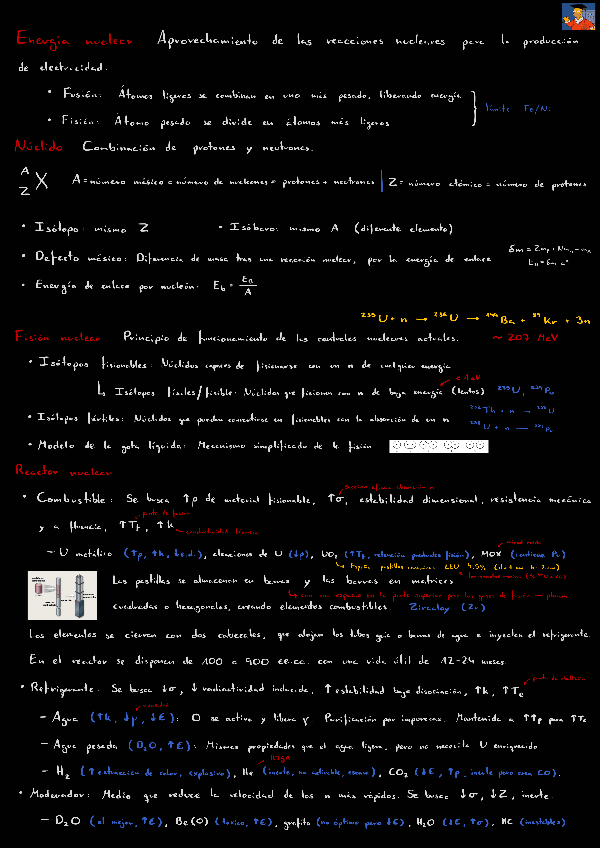 Energía nuclear Aprovechamiento de las reacciones nucleares para la producción
de electricidad.
• Fusión: Átomos ligeros se combinan en uno más pesado, liberando energía
• Fisión: Átomo pesado se divide en átomos más ligeros
límite Fe/Ni
Núclido Combinación de protones y neutrones.
A
Z X A = número másico = número de nucleones = protones + neutrones | Z = número atómico = número de protones
• Isótopo: mismo Z • Isóbaro: mismo A (diferente elemento)
• Defecto másico: Diferencia de masa tras una reacción nuclear, por la energía de enlace
• Energía de enlace por nucleón: Eb = En/A
²³⁵U + n → ²³⁶U → ¹⁴⁴Ba + ⁸⁹Kr + 3n
Fisión nuclear Principio de funcionamiento de las centrales nucleares actuales. ~ 207 MeV
• Isótopos fisionables: Núclidos capaces de fisionarse con un n de cualquier energía
Isótopos físiles/fisible: Núclidos que fisionan con n de baja energía (lentos) ²³⁵U, ²³⁹Pu
• Isótopos fértiles: Núclidos que pueden convertirse en fisionables con la absorción de un n
²³²Th + n → ²³³U
²³⁸U + n → ²³⁹Pu
• Modelo de la gota líquida: Mecanismo simplificado de la fisión
Reactor nuclear
• Combustible: Se busca ↑ρ de material fisionable, ↑σ, estabilidad dimensional, resistencia mecánica
punto de fusión
y a fluencia, ↑Tf, ↑k
conductividad térmica
– U metálico (↑ρ, ↑k, ↓e.d.), aleaciones de U (↓ρ), UO₂ (↑Tf, retención productos fisión), MOX (contiene Pu)
Las pastillas se almacenan en barras y las barras en matrices
cuadradas o hexagonales, creando elementos combustibles. Zircaloy (Zr)
Los elementos se cierran con dos cabezales, que alojan los tubos guía o barras de agua e inyectan el refrigerante.
En el reactor se disponen de 100 a 900 ee.cc. con una vida útil de 12-24 meses.
• Refrigerante: Se busca ↓σ, ↓radiactividad inducida, ↑estabilidad baja disociación, ↑k, ↑Te
– Agua (↑k, ↓μ, ↓€): O se activa y libera γ. Purificación por impurezas. Mantenida a ↑↑p para ↑Te
– Agua pesada (D₂O, ↑€): Mismas propiedades que el agua ligera, pero no necesita U enriquecido
– H₂ (↑extracción de calor, explosivo), He (inerte, no activable, escaso), CO₂ (↓€, ↑ρ, inerte pero crea CO).
• Moderador: Medio que reduce la velocidad de los n más rápidos. Se busca ↓σ, ↓Z, inerte.
– D₂O (el mejor, ↑€), Be(O) (tóxico, ↑€), grafito (no óptimo pero ↓€), H₂O (↓€, ↑σ), HC (inestables)